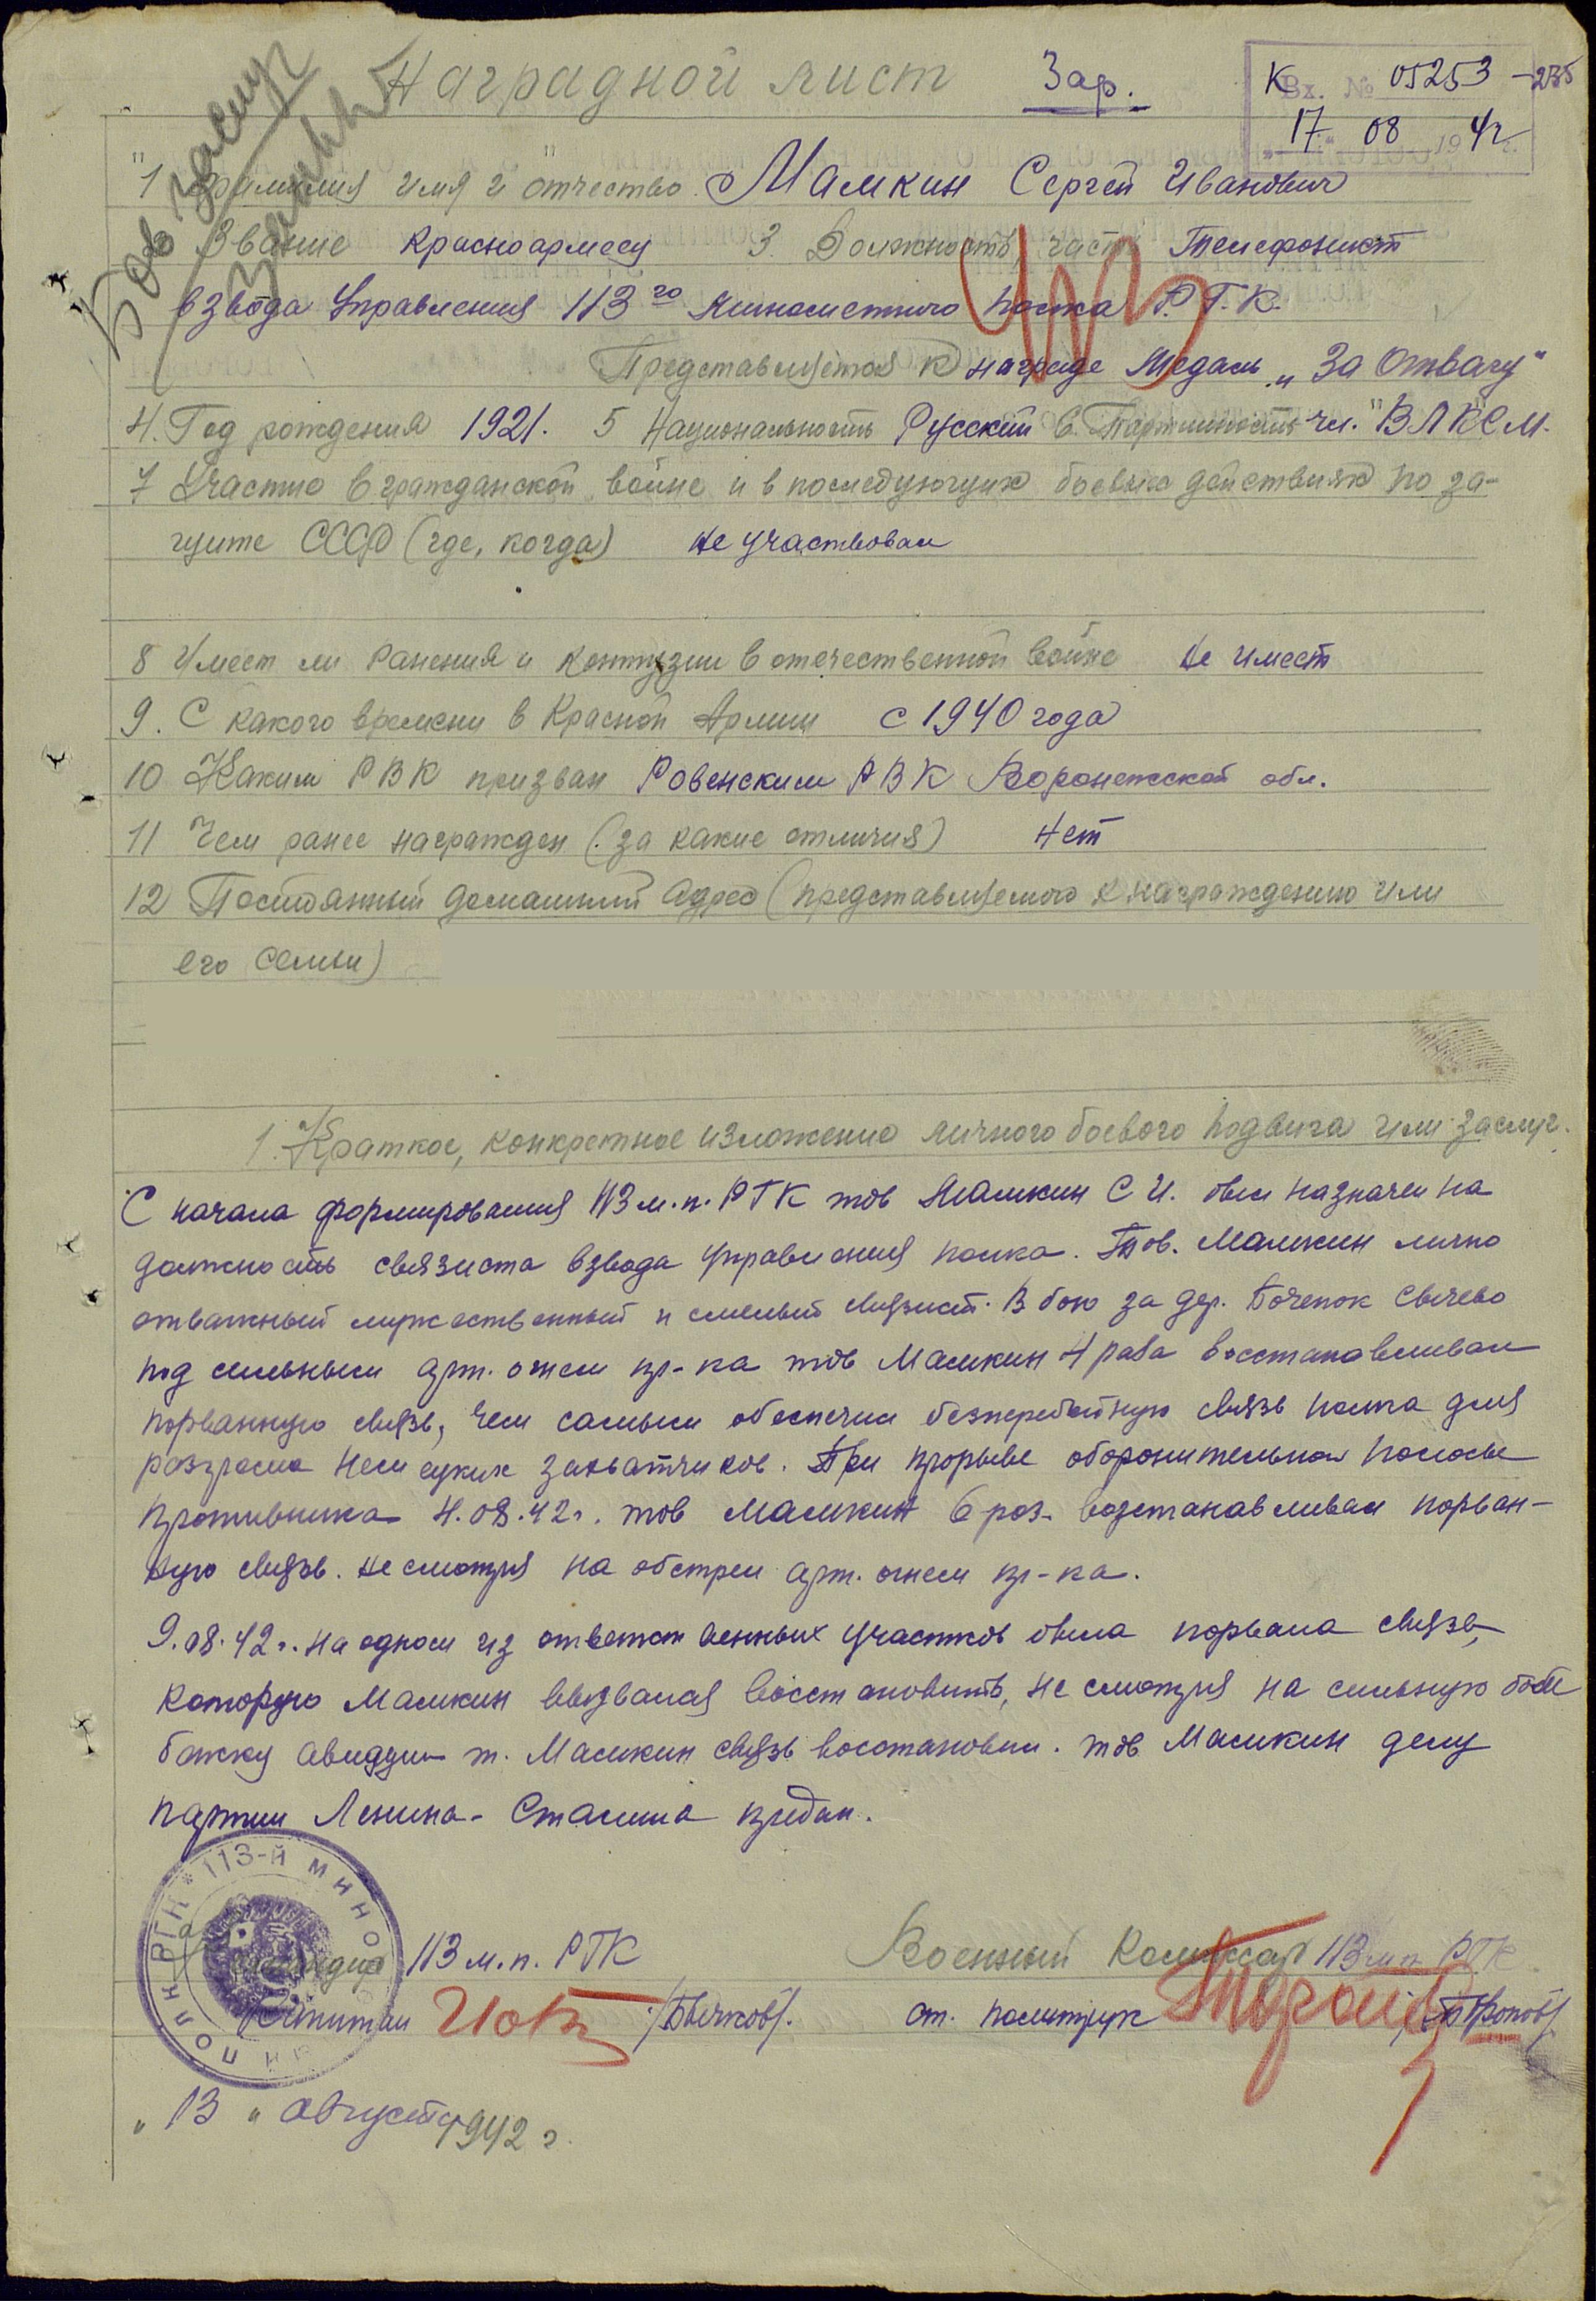 Наградной лист
Зар.
К Вх. № 05253-235
17 08 1942 г.
Бов заслуг
1 Фамилия имя и отчество Мамкин Сергей Иванович
Звание красноармеец 3. Должность, часть Телефонист
взвода Управления 113го Минометного полка Р.Г.К.
Представляется к награде Медаль „За Отвагу"
4. Год рождения 1921. 5 Национальность Русский 6. Партийность чл. "ВЛКСМ.
7 Участие в гражданской войне и в последующих боевых действиях по за-
щите СССР (где, когда) не участвовал
8 Имеет ли ранения и контузии в отечественной войне не имеет
9. С какого времени в Красной Армии с 1940 года
10 Каким РВК призван Ровенским РВК Воронежской обл.
11 Чем ранее награжден (за какие отличия) нет
12 Постоянный домашний адрес (представляемого к награждению или
его семьи)
1. Краткое, конкретное изложение личного боевого подвига или заслуг.
С начала формирования 113 м.п. РГК тов Мамкин С И. был назначен на
должность связиста взвода управления полка. Тов. Мамкин лично
отважный мужественный и смелый связист. В бою за дер. Боченок Свичево
под сильным арт. огнем пр-ка тов Мамкин 4 раза восстанавливал
порванную связь, чем самым обеспечил безперебойную связь полка для
разгрома немецких захватчиков. При прорыве оборонительной полосы
противника 4.08.42г. тов Мамкин 6 раз. возстанавливал порван-
ную связь. не смотря на обстрел арт. огнем пр-ка.
9.08.42г. на одном из ответственных участков была порвана связь,
которую Мамкин вызвался восстановить, не смотря на сильную бом
божку авиации т. Мамкин связь востановил. тов Мамкин делу
партии Ленина-Сталина предан.
113-й МИНО ПОЛК РГК
Командир 113 м.п. РГК
Военный Комиссар 113 мп РГК
Капитан /Бычков/.
ст. политрук
„13" августа 1942 г.